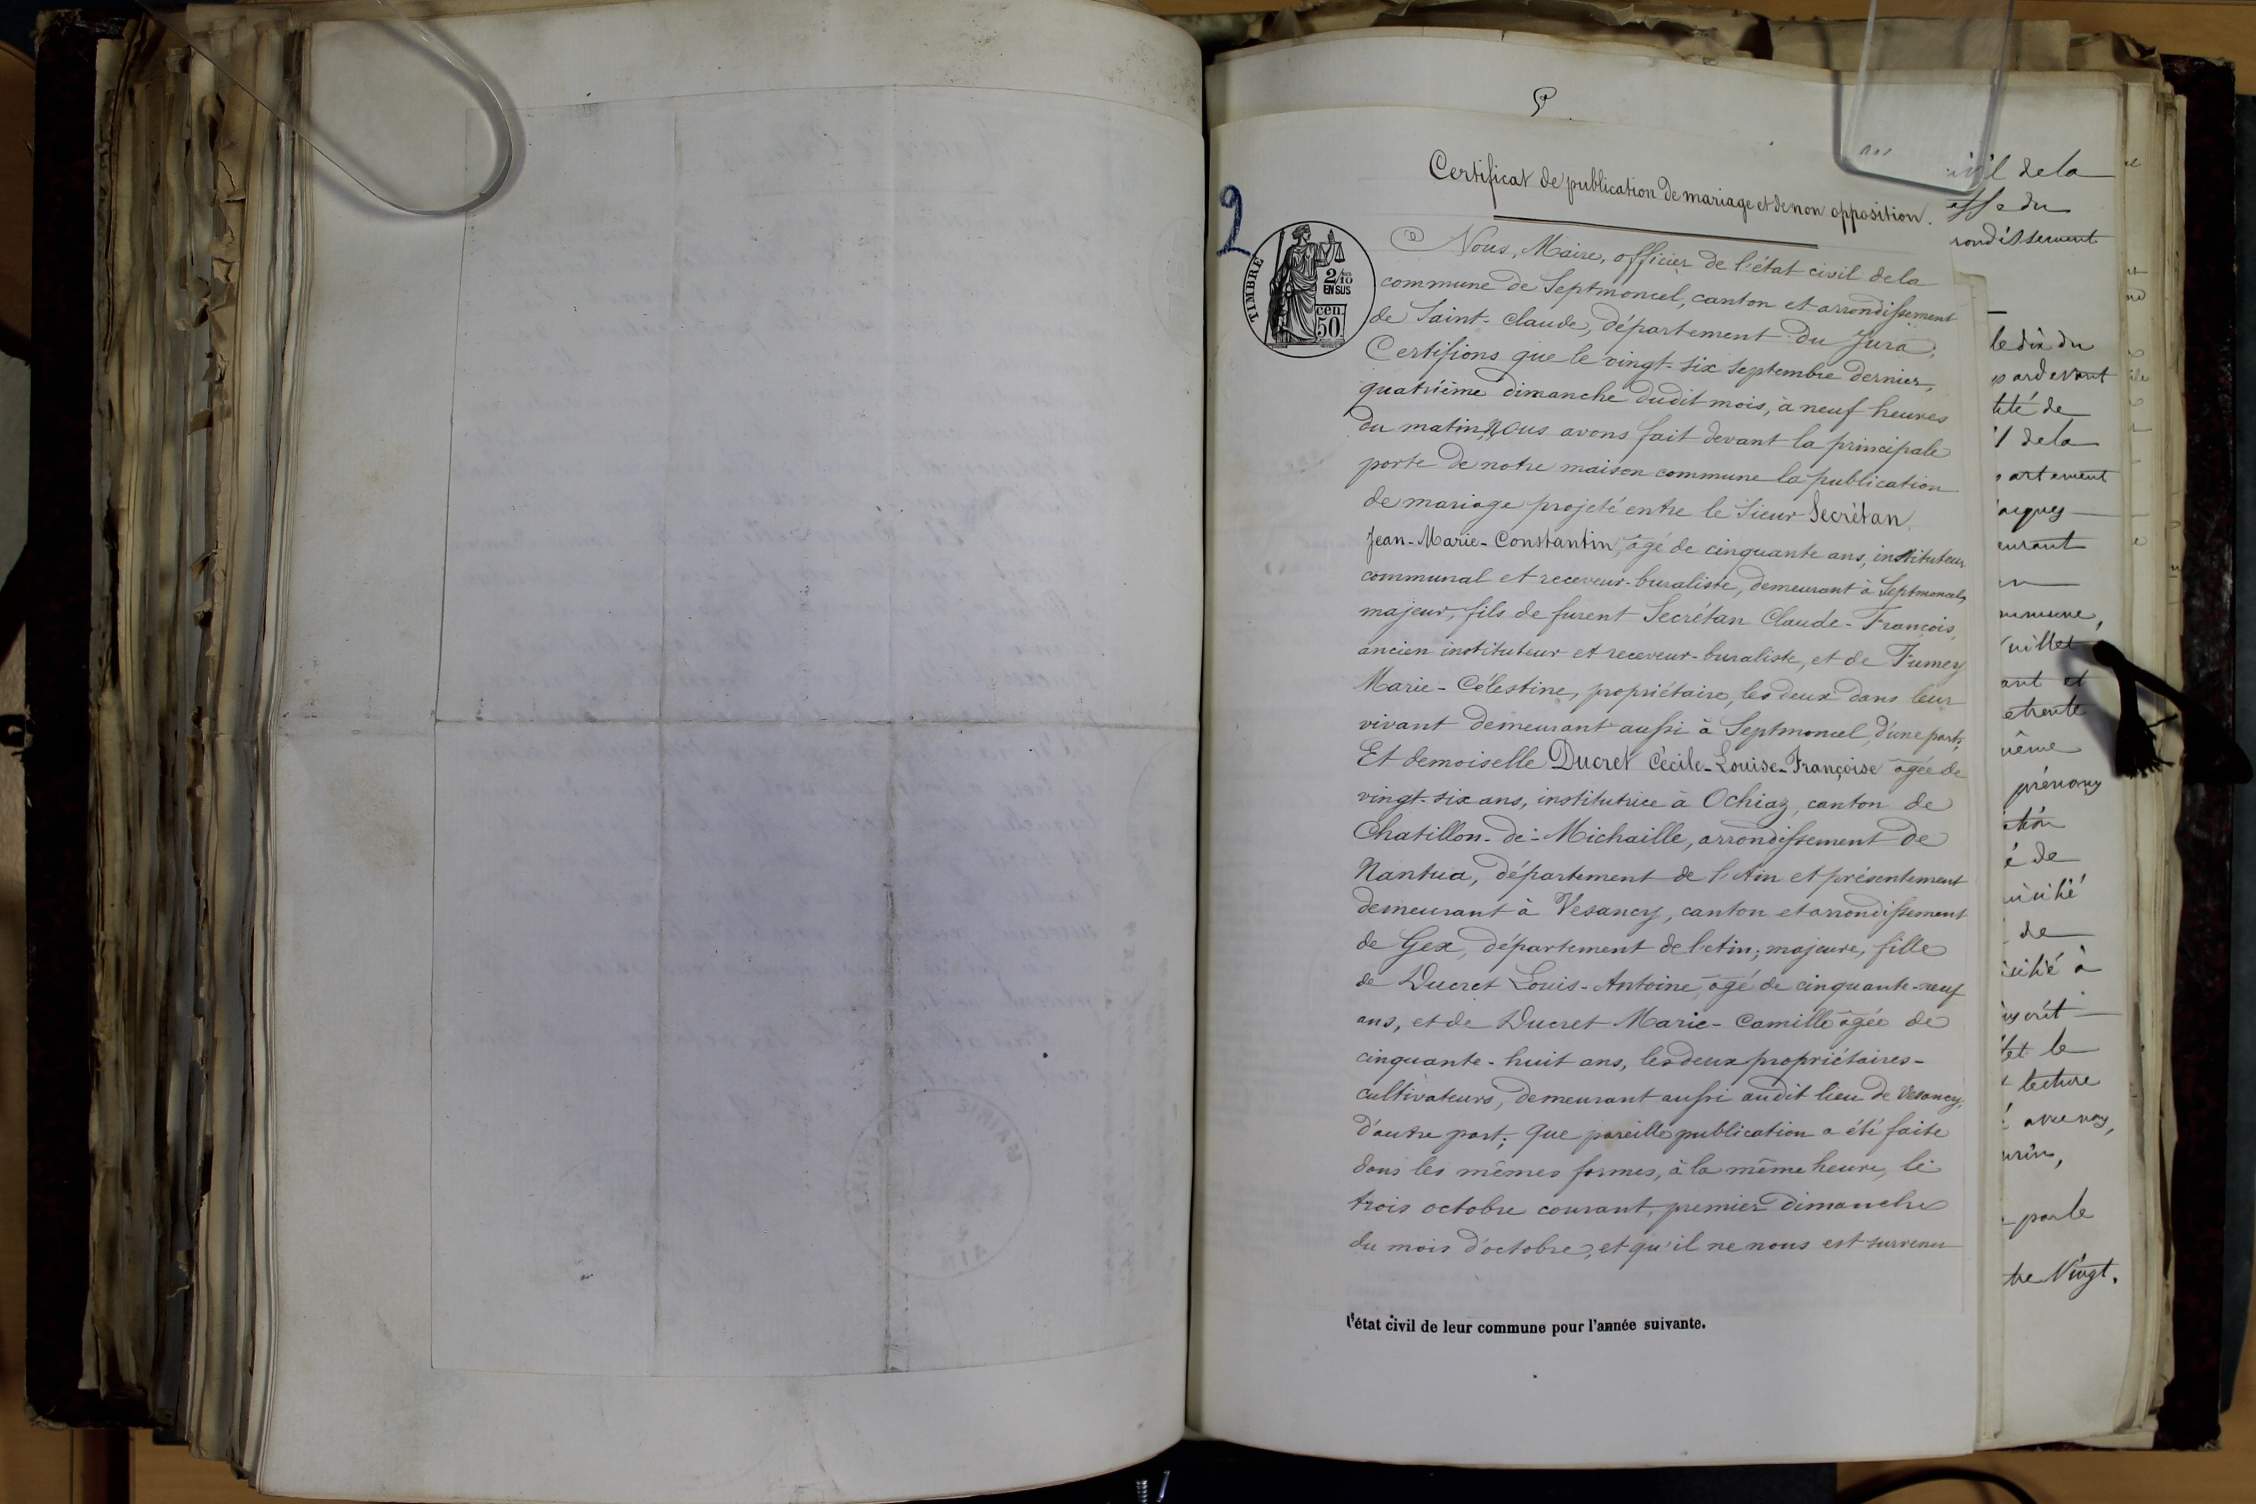 Certificat de publication de mariage et de non opposition.
2
TIMBRE
2/10
EN SUS
cen.
50
Nous, Maire, officier de l'état civil de la
commune de Septmoncel, canton et arrondissement
de Saint-Claude, département du Jura,
Certifions que le vingt-six septembre dernier,
quatrième dimanche dudit mois, à neuf heures
du matin, nous avons fait devant la principale
porte de notre maison commune la publication
de mariage projeté entre le Sieur Secrétan
Jean-Marie-Constantin, âgé de cinquante ans, instituteur
communal et receveur-buraliste, demeurant à Septmoncel,
majeur, fils de furent Secrétan Claude-François,
ancien instituteur et receveur-buraliste, et de Fumey
Marie-Célestine, propriétaire, les deux dans leur
vivant demeurant aussi à Septmoncel, d'une part;
Et demoiselle Ducret Cécile-Louise-Françoise âgée de
vingt-six ans, institutrice à Ochiaz, canton de
Chatillon-de-Michaille, arrondissement de
Nantua, département de l'Ain et présentement
demeurant à Vesancy, canton et arrondissement
de Gex, département de l'Ain; majeure, fille
de Ducret Louis-Antoine, âgé de cinquante-neuf
ans, et de Ducret Marie-Camille âgée de
cinquante-huit ans, les deux propriétaires-
cultivateurs, demeurant aussi audit lieu de Vesancy,
d'autre part; que pareille publication a été faite
dans les mêmes formes, à la même heure, le
trois octobre courant, premier dimanche
du mois d'octobre, et qu'il ne nous est survenu
l'état civil de leur commune pour l'année suivante.
de la
du
le dix du
de
de la
prénoms
de
de
à
le
lecture
par le
Vingt.